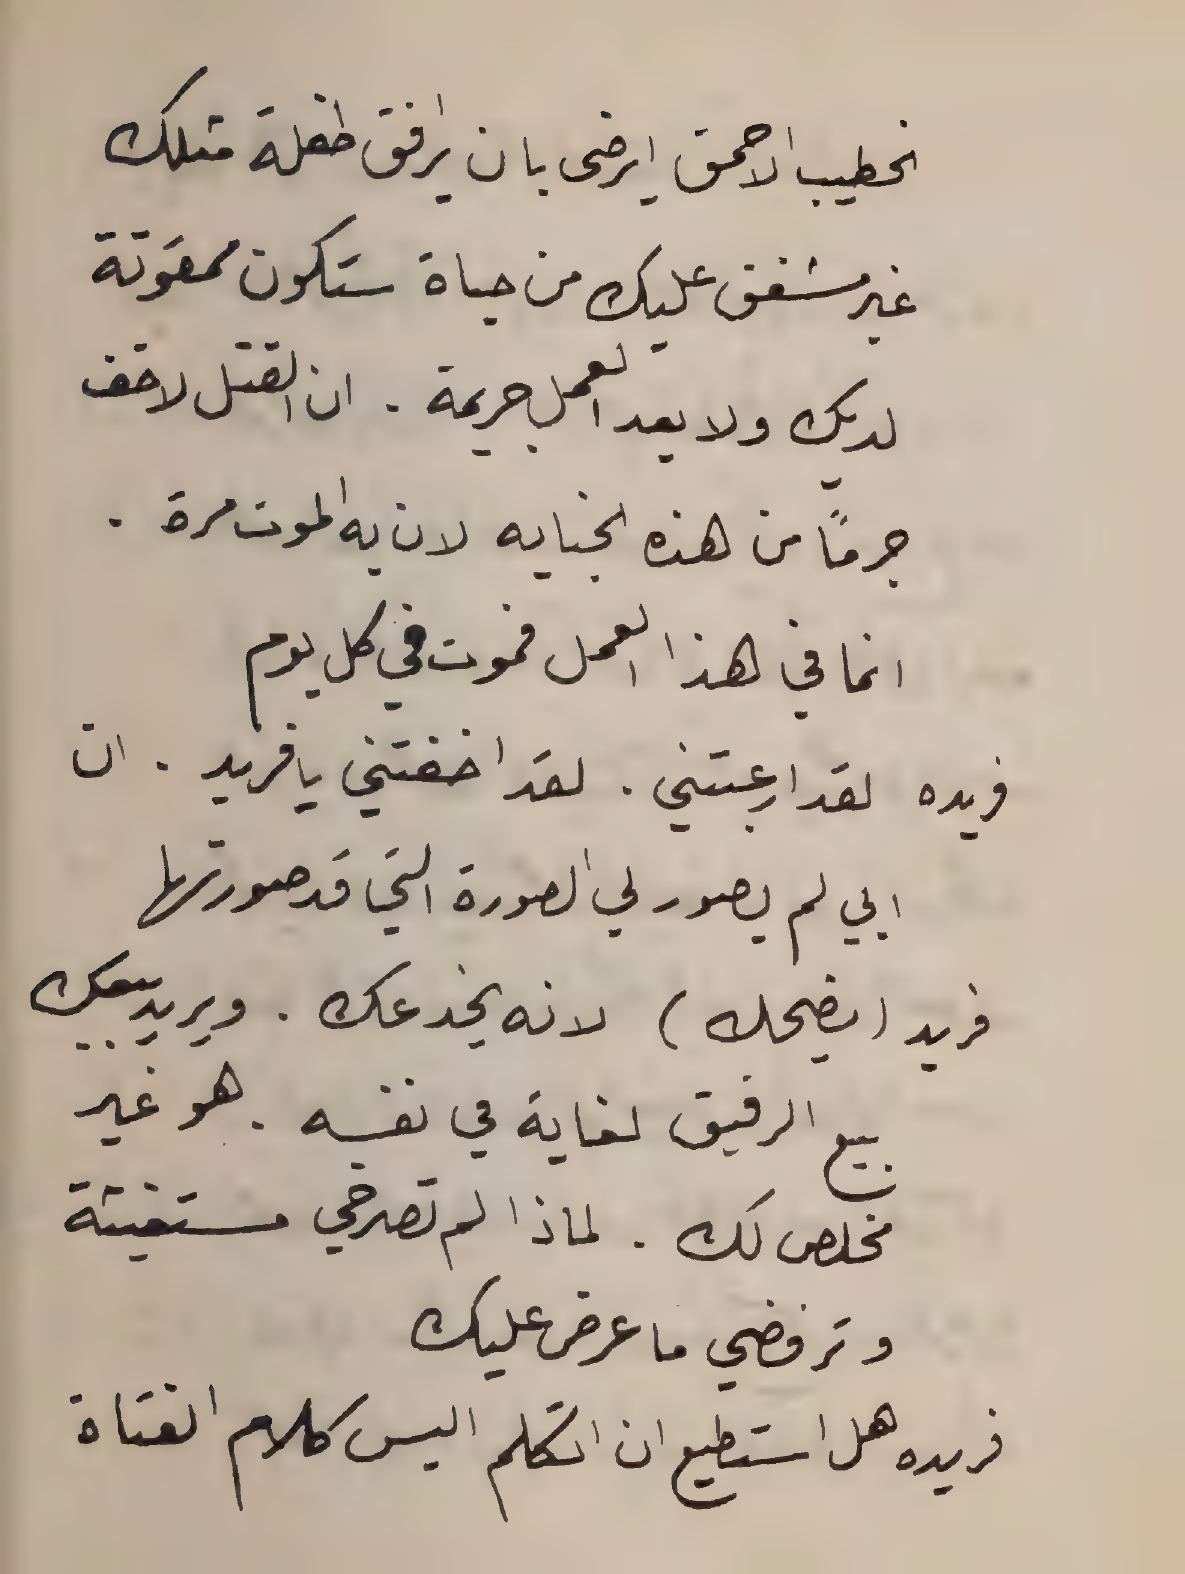 الخطيب الاحمق ايرضى بان يرافق طفلة مثلك
غير مشفق عليك من حياة ستكون ممقوتة
لديك ولا يعد العمل جريمة . ان القتل لاخف
جرمًا من هذه الجنايه لان به الموت مرة .
انما في هذا العمل فموت في كل يوم
فريده لقد ارعبتني . لقد اخفتني يا فريد . ان
ابي لم يصور لي الصورة التي قد صورتها
فريد (يضحك) لانه يخدعك . ويريد بيعك
بيع الرقيق لغاية في نفسه . هو غير
مخلص لك . لماذا لم تصرخي مستغيثة
وترفضي ما عرض عليك
فريده هل استطيع ان اتكلم اليس كلام الفتاة